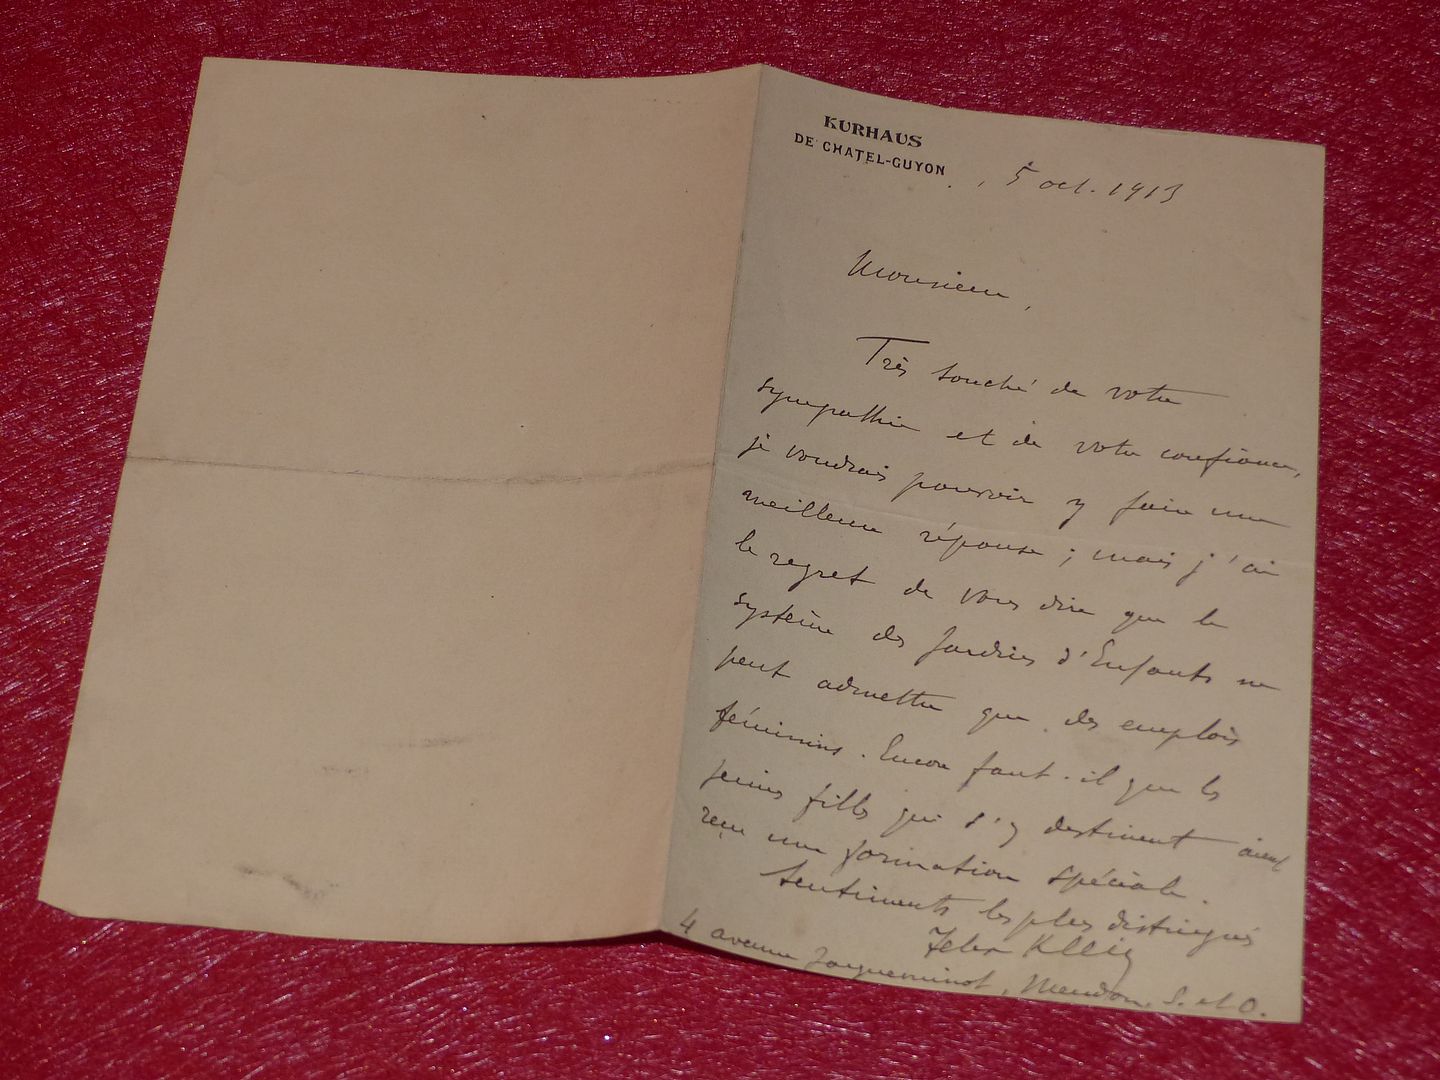 KURHAUS
DE CHATEL-GUYON
, 5 oct. 1913
Monsieur,
Très touché de votre
sympathie et de votre confiance,
je voudrais pouvoir y faire une
meilleure réponse ; mais j'ai
le regret de vous dire que le
système des Jardins d'Enfants ne
peut admettre que des emplois
féminins. Encore faut-il que les
jeunes filles qui s'y destinent aient
reçu une formation spéciale.
Sentiments les plus distingués
Felix Klein
4 avenue Jacqueminot, Meudon, S. et O.